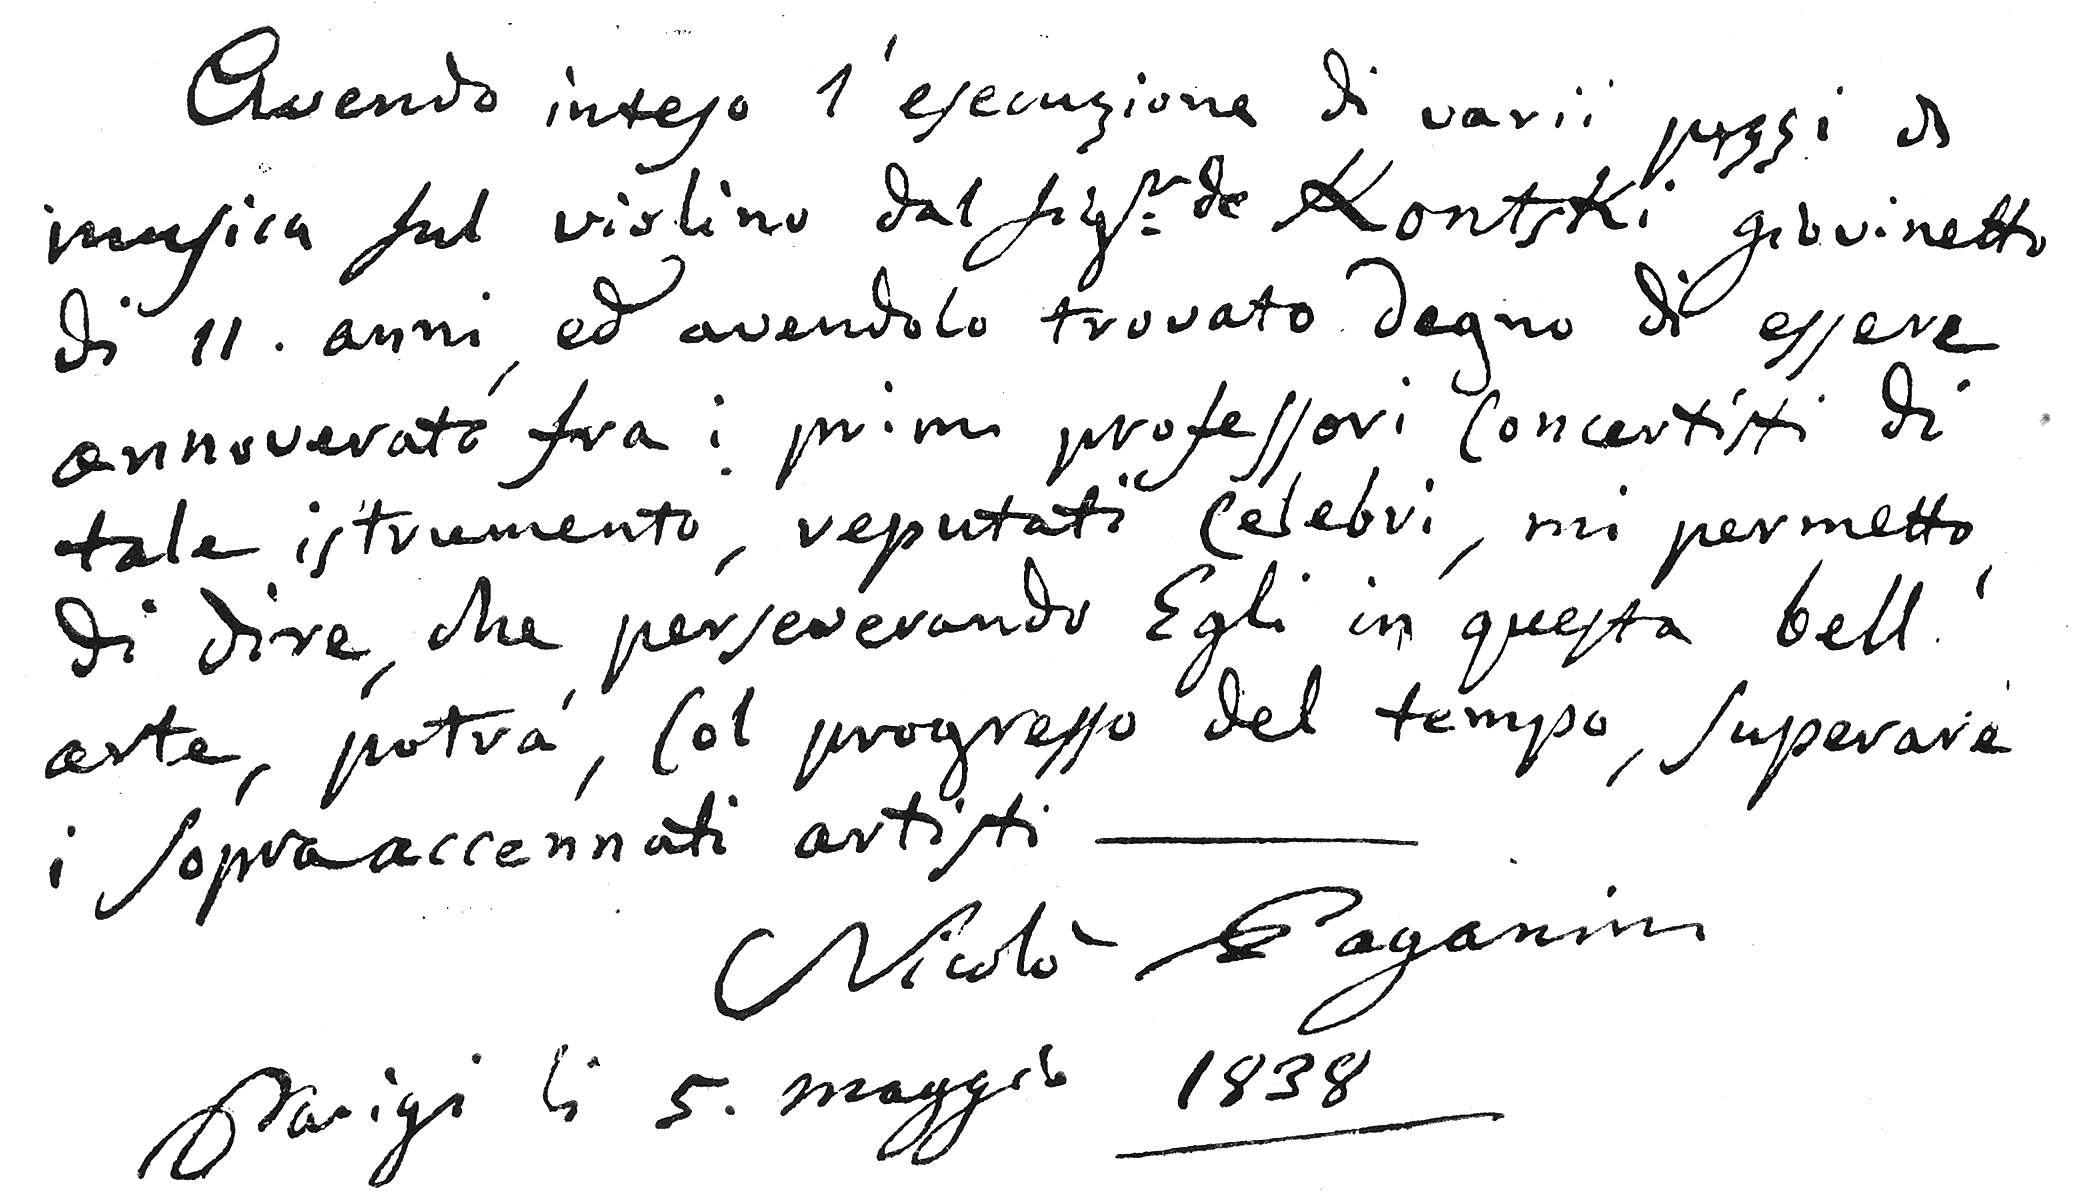 Avendo inteso l'esecuzione di varii pezzi di
musica sul violino dal sigr. de Kontski giovinetto
di 11. anni, ed avendolo trovato degno di essere
annoverato fra i primi professori concertisti di
tale istrumento, reputati celebri, mi permetto,
di dire, che perseverando Egli in questa bell'
arte, potrà, col progresso del tempo, superare
i sopraaccennati artisti
Nicolò Paganini
Parigi li 5. maggio 1838